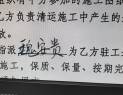 乙方负责清运施工中产生的
指派 魏安贵 为乙方驻工
施工,保质、保量、按期完